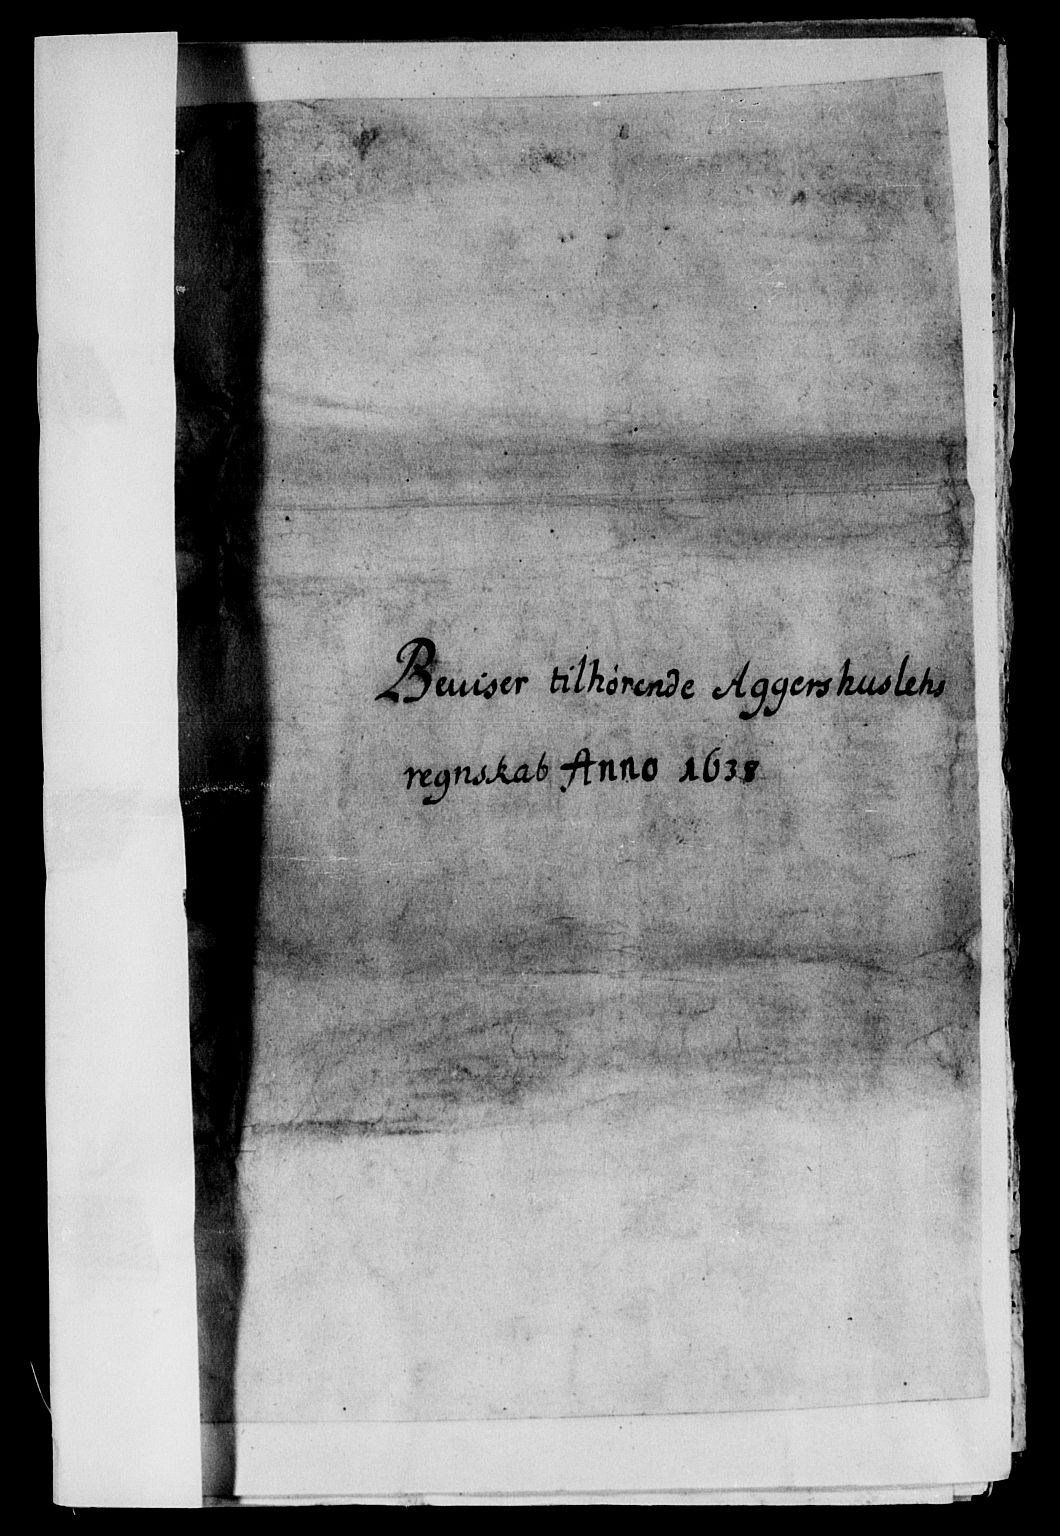 Beuiser tilhørende Aggershuslehs
regnskab Anno 1638